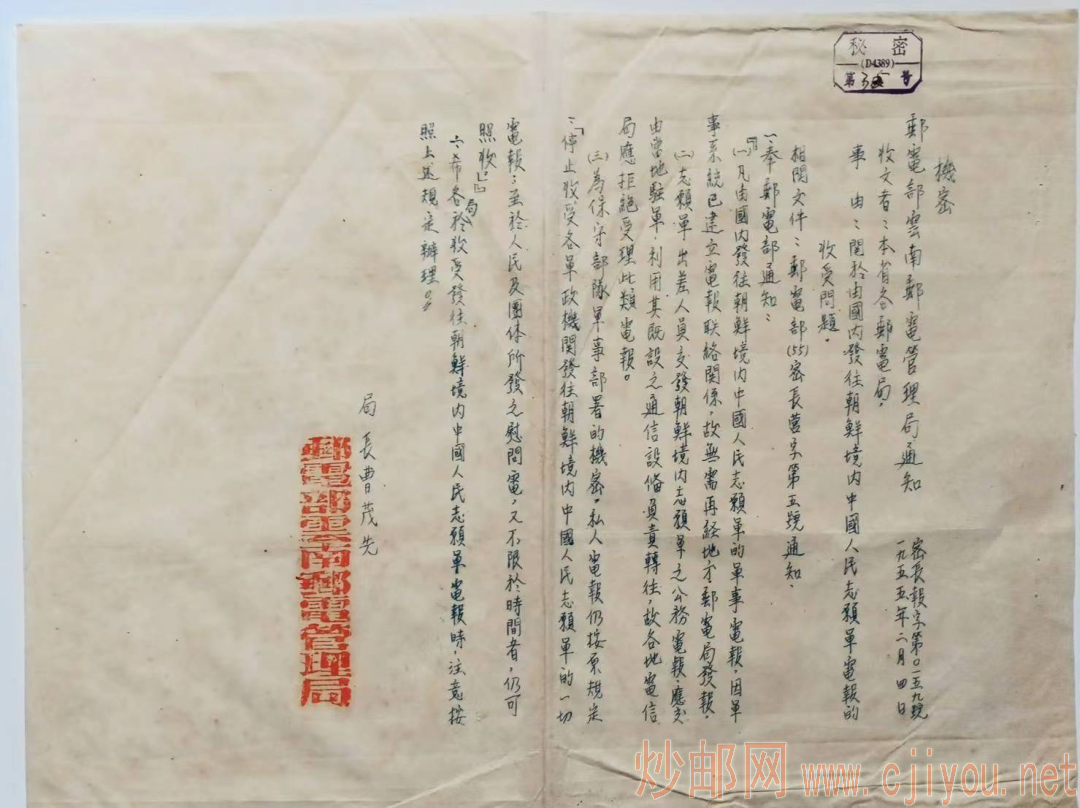 秘密
(D4389)
第35号
機密
郵電部雲南郵電管理局通知
密長報字第〇一五九號
一九五五年二月四日
收文者：本省各郵電局．
事由：関於由國内發往朝鮮境内中國人民志願軍電報的
收受問題．
相関文件：郵電部(55)密長营字第五號通知．
一、奉郵電部通知：
『(一)凡由國内發往朝鮮境内中國人民志願軍的軍事電報，因軍
事系統已建立電報联絡関係，故無需再经地方郵電局發報．
(二)志願軍出差人員交發朝鮮境内志願軍之公務電報，應交
由當地駐軍，利用其既設之通信設俻負責轉往，故各地電信
局應拒絕受理此類電報。
(三)為保守部隊軍事部署的機密，私人電報仍按原規定
：「停止收受各軍政機関發往朝鮮境内中國人民志願軍的一切
電報；至於人民及團体所發之慰問電，又不限於時間者，仍可
照收」』
二、希各局於收受發往朝鮮境内中國人民志願軍電報時，注意按
照上述規定辦理。
局長曹茂先
郵電部雲南郵電管理局
炒邮网 www.cjiyou.net